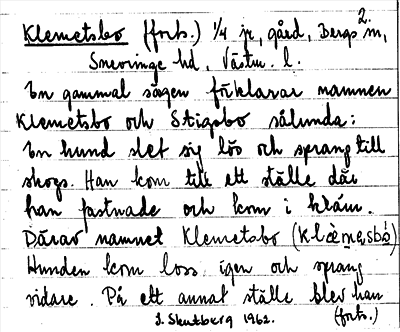 2.
Klemetsbo (forts.) 1/4 jr, gård, Bergs sn,
Snevringe hd, Västm. l.
En gammal sägen förklarar namnen
Klemetsbo och Stigsbo sålunda:
En hund slet sig lös och sprang till
skogs. Han kom till ett ställe där
han fastnade och kom i kläm.
Därav namnet Klemetsbo
Hunden kom loss igen och sprang
vidare. På ett annat ställe blev han
(forts.)
J. Skutberg 1962.